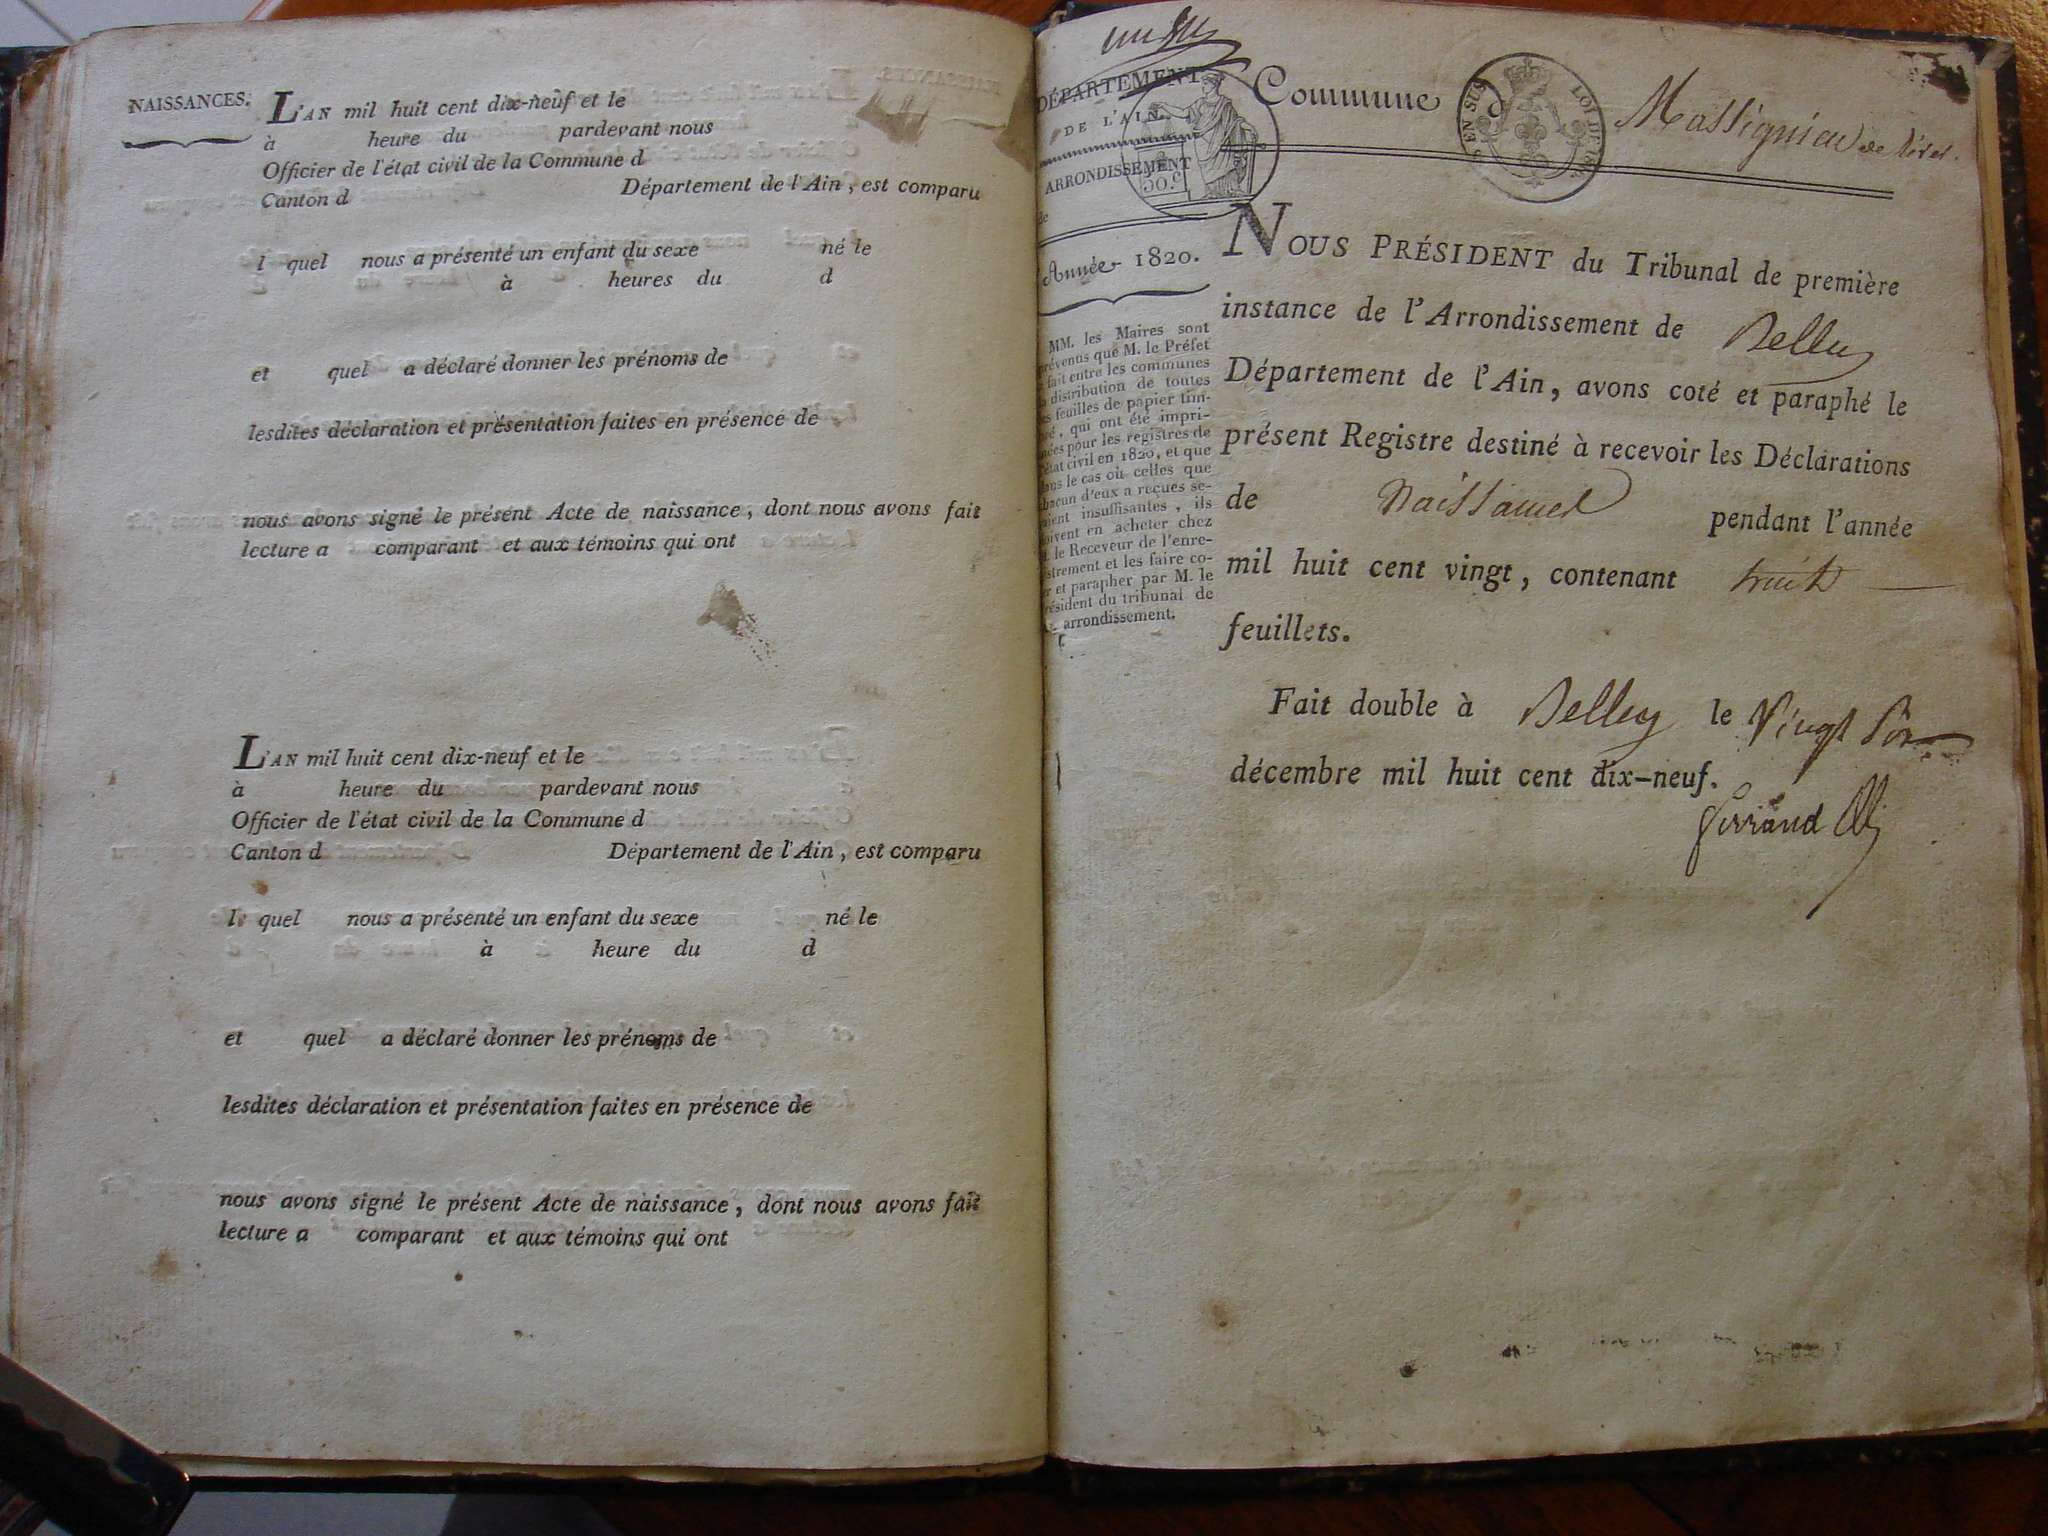 NAISSANCES.
L'AN mil huit cent dix-neuf et le
à heure du pardevant nous
Officier de l'état civil de la Commune d
Canton d Département de l'Ain, est comparu
l quel nous a présenté un enfant du sexe né le
à heures du d
et quel a déclaré donner les prénoms de
lesdites déclaration et présentation faites en présence de
nous avons signé le présent Acte de naissance, dont nous avons fait
lecture a comparant et aux témoins qui ont
L'AN mil huit cent dix-neuf et le
à heure du pardevant nous
Officier de l'état civil de la Commune d
Canton d Département de l'Ain, est comparu
l quel nous a présenté un enfant du sexe né le
à heure du d
et quel a déclaré donner les prénoms de
lesdites déclaration et présentation faites en présence de
nous avons signé le présent Acte de naissance, dont nous avons fait
lecture a comparant et aux témoins qui ont
DÉPARTEMENT
DE L'AIN.
ARRONDISSEMENT
de
Année 1820.
MM. les Maires sont
prévenus que M. le Préfet
fait entre les communes
distribution de toutes
feuilles de papier tim-
qui ont été impri-
mées pour les registres de
état civil en 1820, et que
dans le cas où celles que
chacun d'eux a reçues se-
raient insuffisantes, ils
doivent en acheter chez
le Receveur de l'enre-
gistrement et les faire co-
ter et parapher par M. le
Président du tribunal de
arrondissement.
Commune d Massignieu de Rives.
EN SUS LOI DE
50 c.
NOUS PRÉSIDENT du Tribunal de première
instance de l'Arrondissement de Belley
Département de l'Ain, avons coté et paraphé le
présent Registre destiné à recevoir les Déclarations
de Naissances pendant l'année
mil huit cent vingt, contenant huit
feuillets.
Fait double à Belley le Vingt Six
décembre mil huit cent dix-neuf.